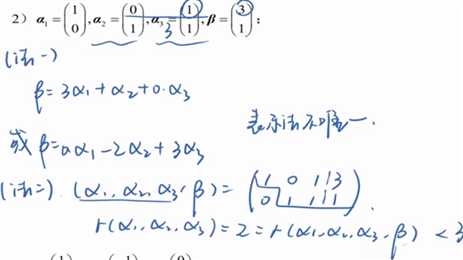 2) α₁=(1 0), α₂=(0 1), α₃=(1 1), β=(3 1):
3
(法一)
β=3α₁+α₂+0·α₃
表示法不唯一.
或 β=0α₁-2α₂+3α₃
(法二) (α₁, α₂, α₃, β)=(1 0 1 | 3
0 1 1 | 1).
r(α₁, α₂, α₃)=2=r(α₁, α₂, α₃, β) <3